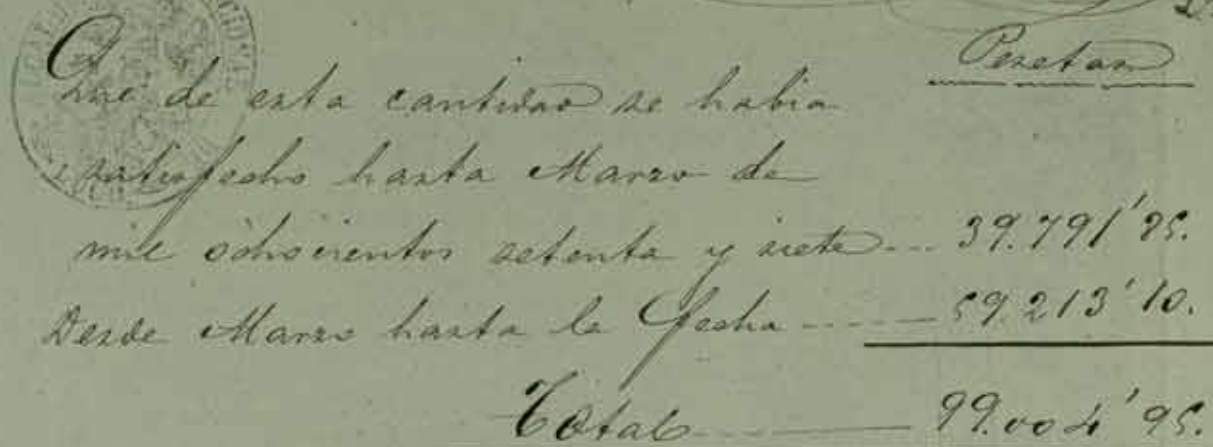 Pesetas
Que de esta cantidad se habia
satisfecho hasta Marzo de
mil ochocientos setenta y siete --- 39.791'85.
Desde Marzo hasta la fecha ------ 59.213'10.
Total ------ 99.004'95.